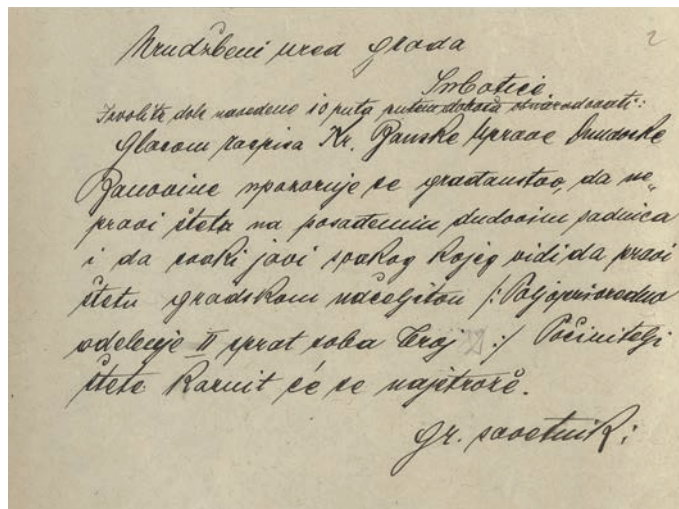 2
Urudžbeni ured grada
Subotice
Izvolite dole navedeno 10 puta putem doboša obnarodovati:
Glasom raspisa Kr. Banske Uprave Dunavske
Banovine upozoruje se građanstvo, da ne„
pravi šteta na posađenim dudovim sadnica
i da svaki javi svakog kojeg vidi da pravi
štetu gradskom načelištvu /: Poljoprivredno
odelenje II sprat soba broj 22 :/ Počinitelji
štete kaznit će se najstrože.
gr. savetnik: